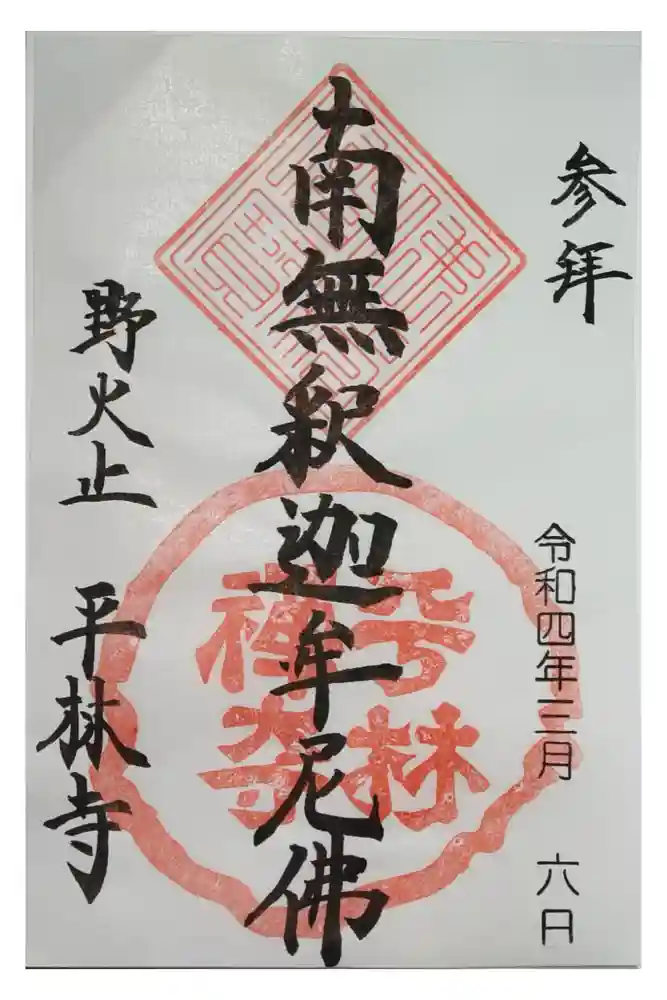 参拝
令和四年三月 六日
南無釈迦牟尼佛
野火止 平林寺
平林
禅寺